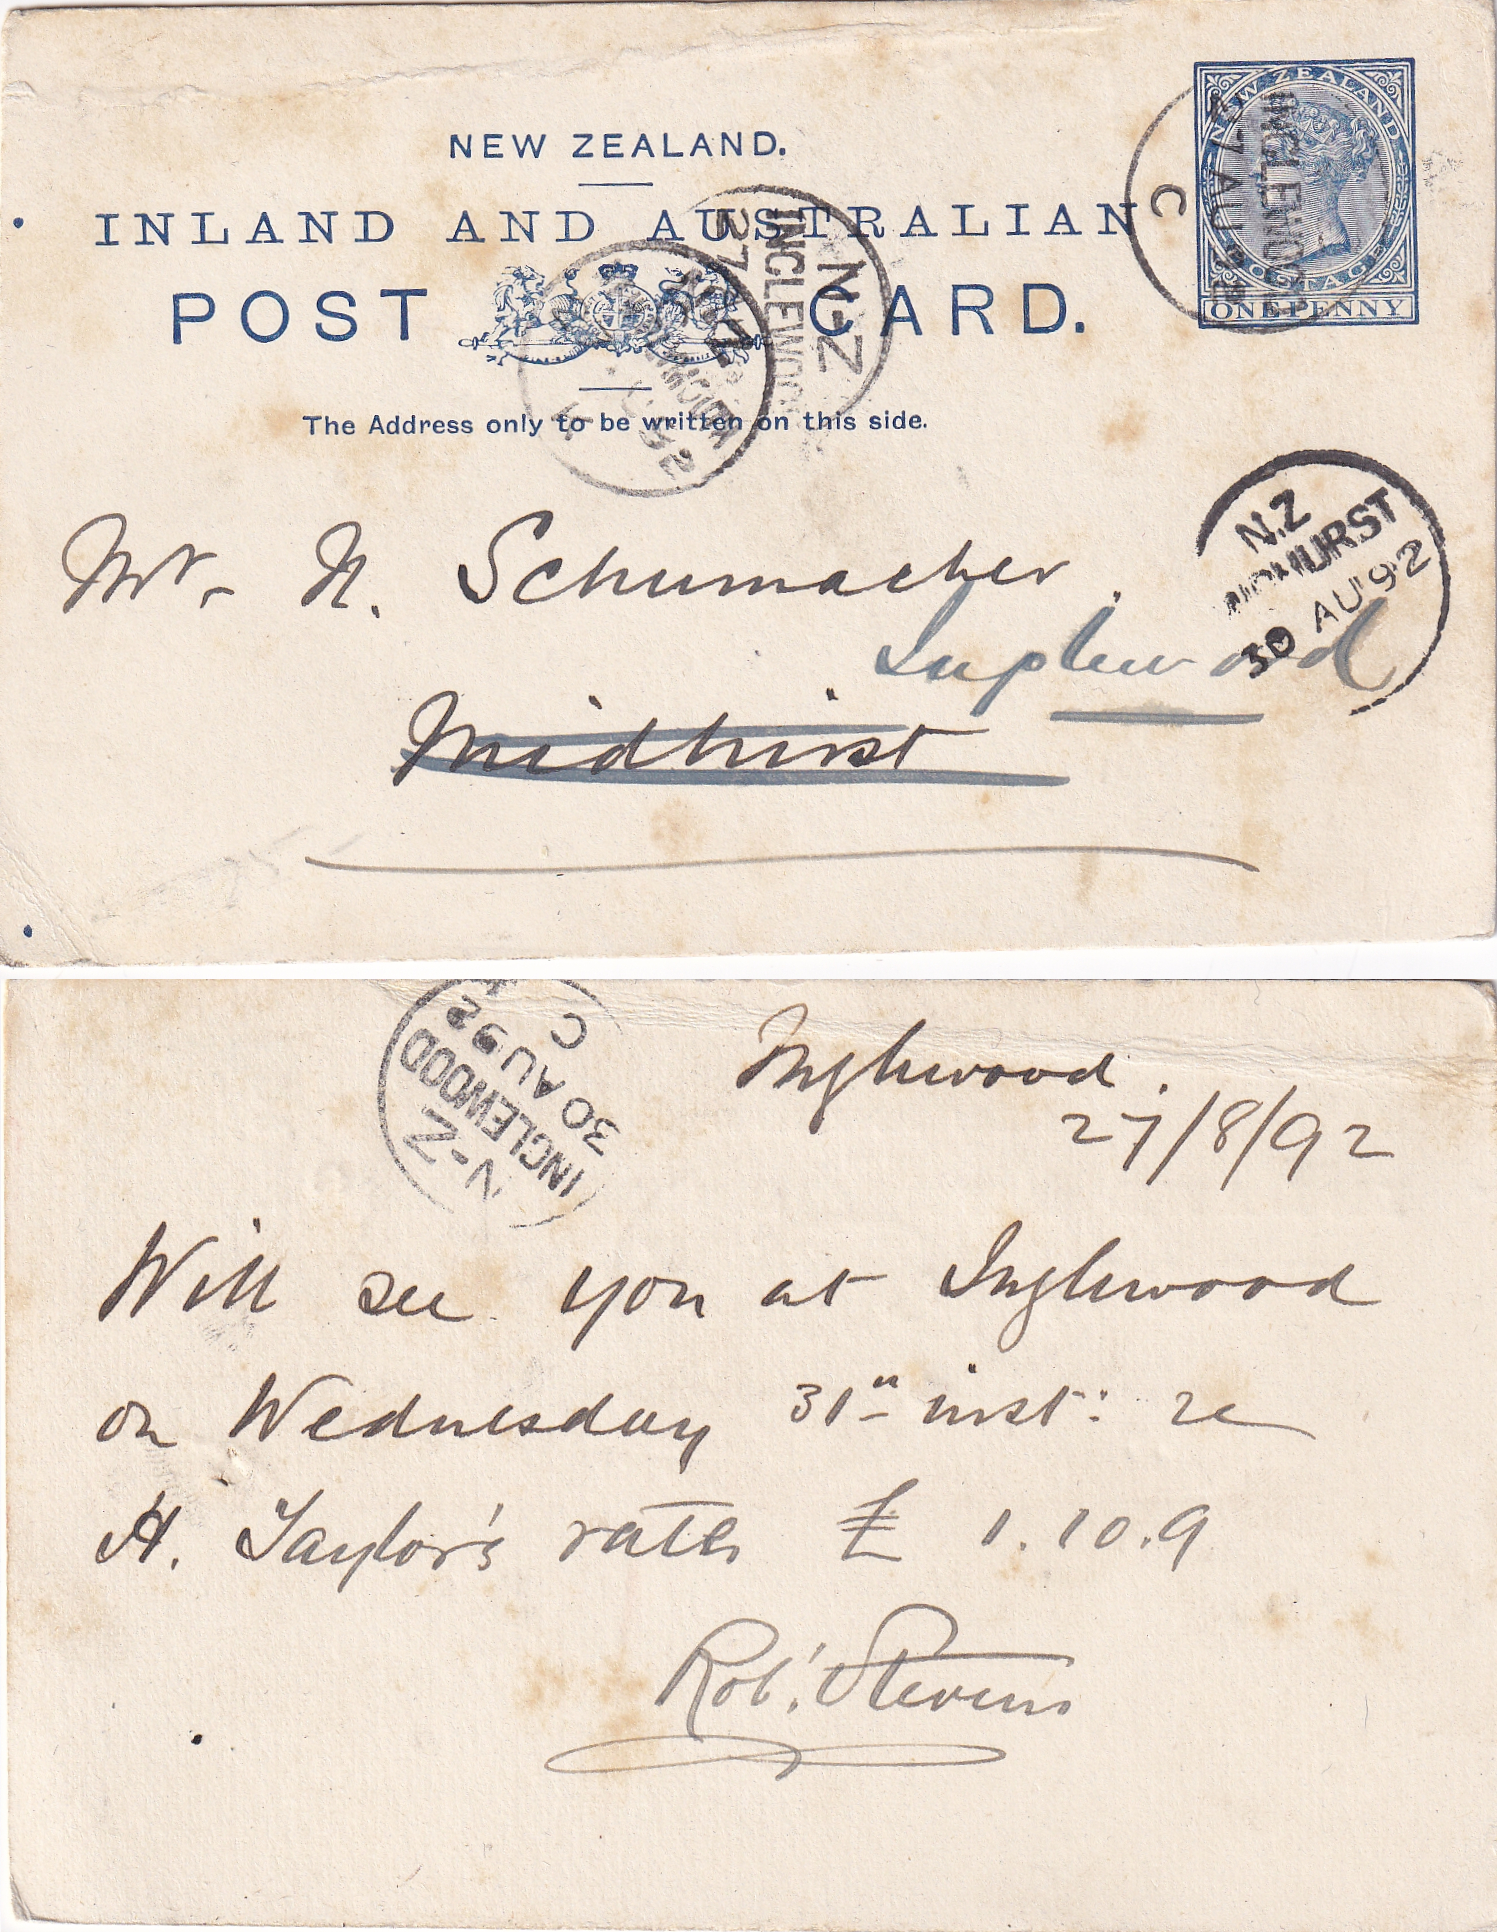 NEW ZEALAND.
INLAND AND AUSTRALIAN
POST CARD.
The Address only to be written on this side.
NEW ZEALAND
POSTAGE
ONE PENNY
INGLEWOOD
27 AU 92
C
N-Z
INGLEWOOD
27
N.Z
92
N.Z
MIDHURST
30 AU 92
Mr. N. Schumacher.
Inglewood
Midhirst
N-Z
INGLEWOOD
30 AU 92
C
Inglewood.
27/8/92
Will see you at Inglewood
on Wednesday 31st inst: re
H. Taylor's rates £ 1.10.9
Robt. Stevens